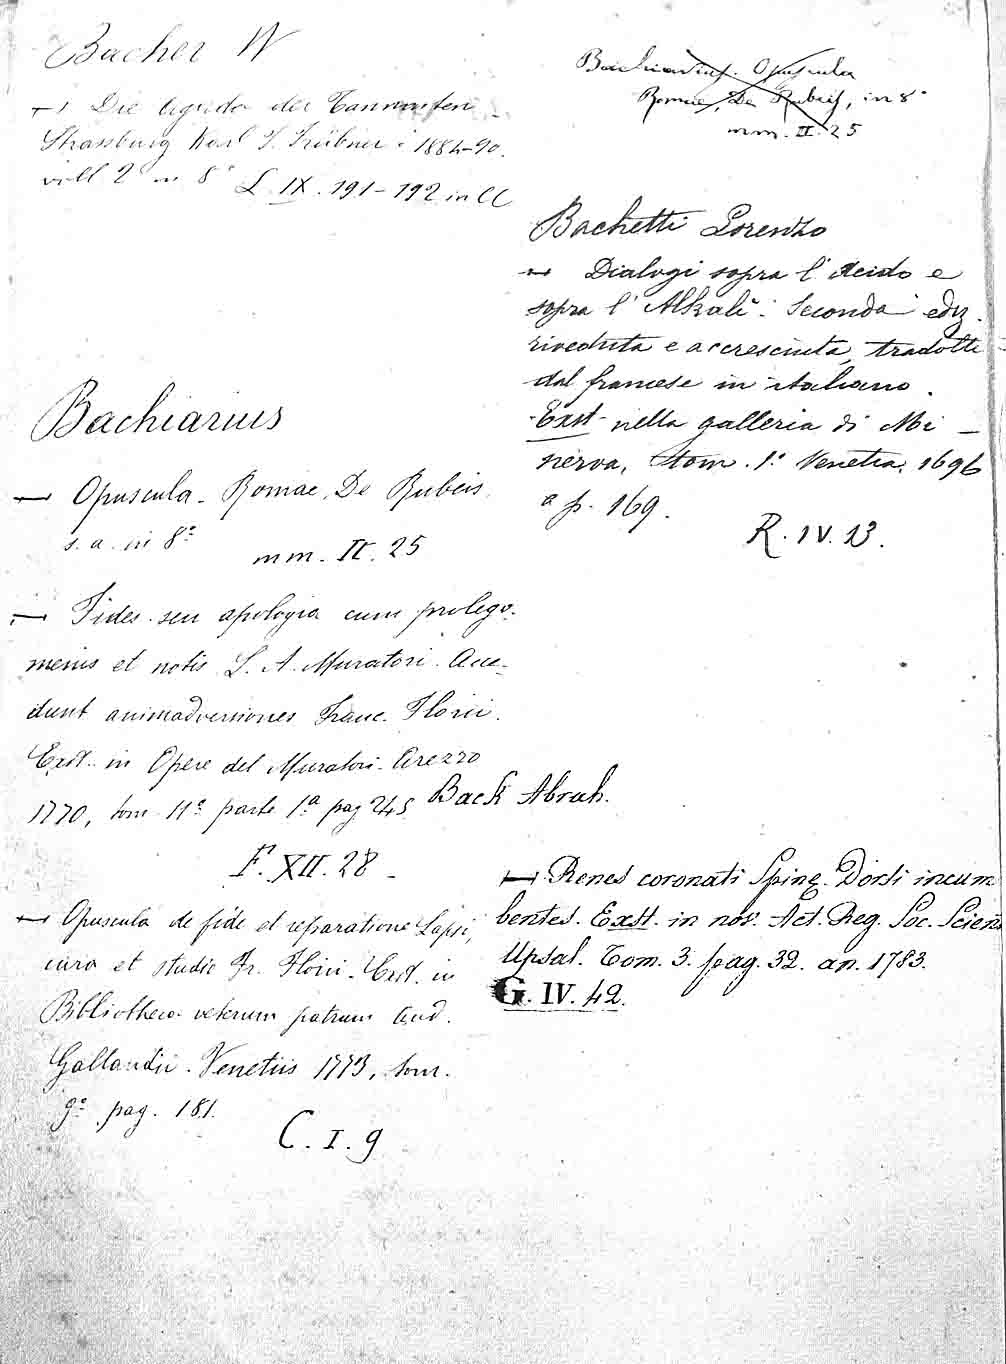 Bacher W
— Die Agada der Tannaiten
Strassburg Karl J. Trübner : 1884-90.
voll 2 in 8° L. IX. 191-192 in CC
Bachiarius
— Opuscula - Romae, De Rubeis
s. a. in 8°
mm. II. 25
— Fides seu apologia cum prolego-
menis et notis L. A. Muratori. Acce-
dunt animadversiones Franc. Florii.
Exst. in Opere del Muratori. Arezzo
1770, tom 11° parte 1ª pag 245
F. XII. 28
— Opuscula de fide et reparatione Lapsi,
cura et studio Fr. Florii. Exst. in
Bibliotheca veterum patrum And.
Gallandii. Venetiis 1773, tom.
9° pag. 181.
C. I. 9
Bachiarius. Opuscula
Romae, De Rubeis, in 8°
mm. II. 25
Bachetti Lorenzo
— Dialogi sopra l'Acido e
sopra l'Alkali : Seconda ediz.
riveduta e accresciuta, tradotti
dal francese in italiano.
Exst. nella galleria di Mi-
nerva, tom. 1° Venetia, 1696
a p. 169.
R. IV. 13.
Back Abrah.
— Renes coronati Spinę Dorsi incum
bentes. Exst. in nov. Act. Reg. Soc. Scien
Upsal. Tom. 3. pag. 32. an. 1783.
G. IV. 42.